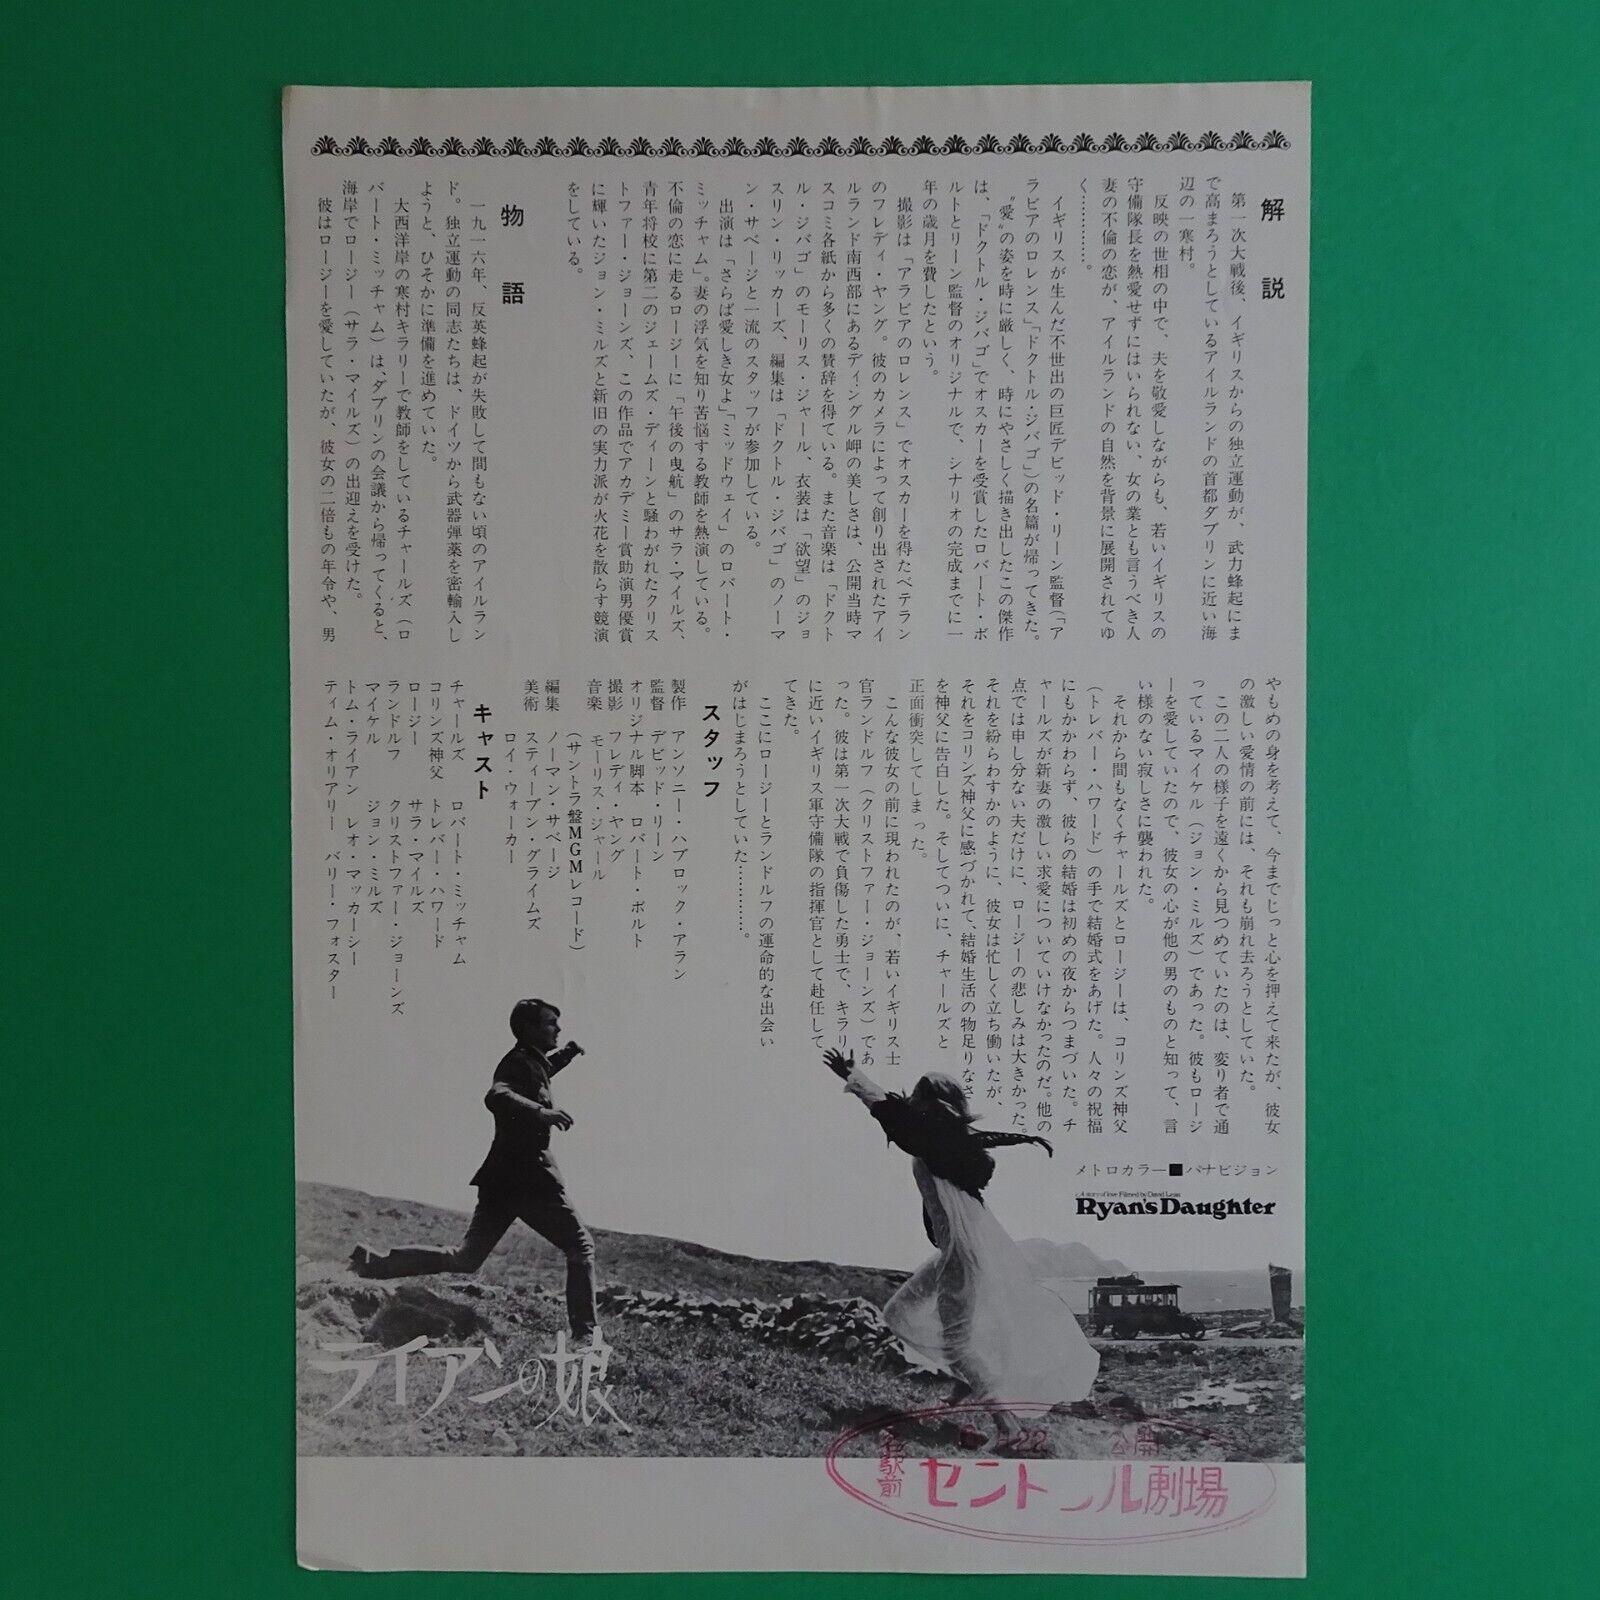 解説
第一次大戦後、イギリスからの独立運動が、武力蜂起にま
で高まろうとしているアイルランドの首都ダブリンに近い海
辺の一寒村。
反映の世相の中で、夫を敬愛しながらも、若いイギリスの
守備隊長を熱愛せずにはいられない、女の業とも言うべき人
妻の不倫の恋が、アイルランドの自然を背景に展開されてゆ
く…………。
イギリスが生んだ不世出の巨匠デビッド・リーン監督(「ア
ラビアのロレンス」「ドクトル・ジバゴ」)の名篇が帰ってきた。
〝愛〟の姿を時に厳しく、時にやさしく描き出したこの傑作
は、「ドクトル・ジバゴ」でオスカーを受賞したロバート・ボ
ルトとリーン監督のオリジナルで、シナリオの完成までに一
年の歳月を費したという。
撮影は「アラビアのロレンス」でオスカーを得たベテラン
のフレディ・ヤング。彼のカメラによって創り出されたアイ
ルランド南西部にあるディングル岬の美しさは、公開当時マ
スコミ各紙から多くの賛辞を得ている。また音楽は「ドクト
ル・ジバゴ」のモーリス・ジャール、衣装は「欲望」のジョ
スリン・リッカーズ、編集は「ドクトル・ジバゴ」のノーマ
ン・サベージと一流のスタッフが参加している。
出演は「さらば愛しき女よ」「ミッドウェイ」のロバート・
ミッチャム。妻の浮気を知り苦悩する教師を熱演している。
不倫の恋に走るロージーに「午後の曳航」のサラ・マイルズ、
青年将校に第二のジェームズ・ディーンと騒わがれたクリス
トファー・ジョーンズ、この作品でアカデミー賞助演男優賞
に輝いたジョン・ミルズと新旧の実力派が火花を散らす競演
をしている。
物語
一九一六年、反英蜂起が失敗して間もない頃のアイルラン
ド。独立運動の同志たちは、ドイツから武器弾薬を密輸入し
ようと、ひそかに準備を進めていた。
大西洋岸の寒村キラリーで教師をしているチャールズ(ロ
バート・ミッチャム)は、ダブリンの会議から帰ってくると、
海岸でロージー(サラ・マイルズ)の出迎えを受けた。
彼はロージーを愛していたが、彼女の二倍もの年令や、男
やもめの身を考えて、今までじっと心を押えて来たが、彼女
の激しい愛情の前には、それも崩れ去ろうとしていた。
この二人の様子を遠くから見つめていたのは、変り者で通
っているマイケル(ジョン・ミルズ)であった。彼もロージ
ーを愛していたので、彼女の心が他の男のものと知って、言
い様のない寂しさに襲われた。
それから間もなくチャールズとロージーは、コリンズ神父
(トレバー・ハワード)の手で結婚式をあげた。人々の祝福
にもかかわらず、彼らの結婚は初めの夜からつまづいた。チ
ャールズが新妻の激しい求愛についていけなかったのだ。他の
点では申し分ない夫だけに、ロージーの悲しみは大きかった。
それを紛らわすかのように、彼女は忙しく立ち働いたが、
それをコリンズ神父に感づかれて、結婚生活の物足りなさ
を神父に告白した。そしてついに、チャールズと
正面衝突してしまった。
こんな彼女の前に現われたのが、若いイギリス士
官ランドルフ(クリストファー・ジョーンズ)であ
った。彼は第一次大戦で負傷した勇士で、キラリー
に近いイギリス軍守備隊の指揮官として赴任して
てきた。
ここにロージーとランドルフの運命的な出会い
がはじまろうとしていた…………。
スタッフ
製作 アンソニー・ハブロック・アラン
監督 デビッド・リーン
オリジナル脚本 ロバート・ボルト
撮影 フレディ・ヤング
音楽 モーリス・ジャール
(サントラ盤MGMレコード)
編集 ノーマン・サベージ
美術 スティーブン・グライムズ
ロイ・ウォーカー
キャスト
チャールズ ロバート・ミッチャム
コリンズ神父 トレバー・ハワード
ロージー サラ・マイルズ
ランドルフ クリストファー・ジョーンズ
マイケル ジョン・ミルズ
トム・ライアン レオ・マッカーシー
ティム・オリアリー バリー・フォスター
メトロカラー■パナビジョン
A story of love Filmed by David Lean
Ryan's Daughter
ライアンの娘
22 公開
名駅前
セントラル劇場